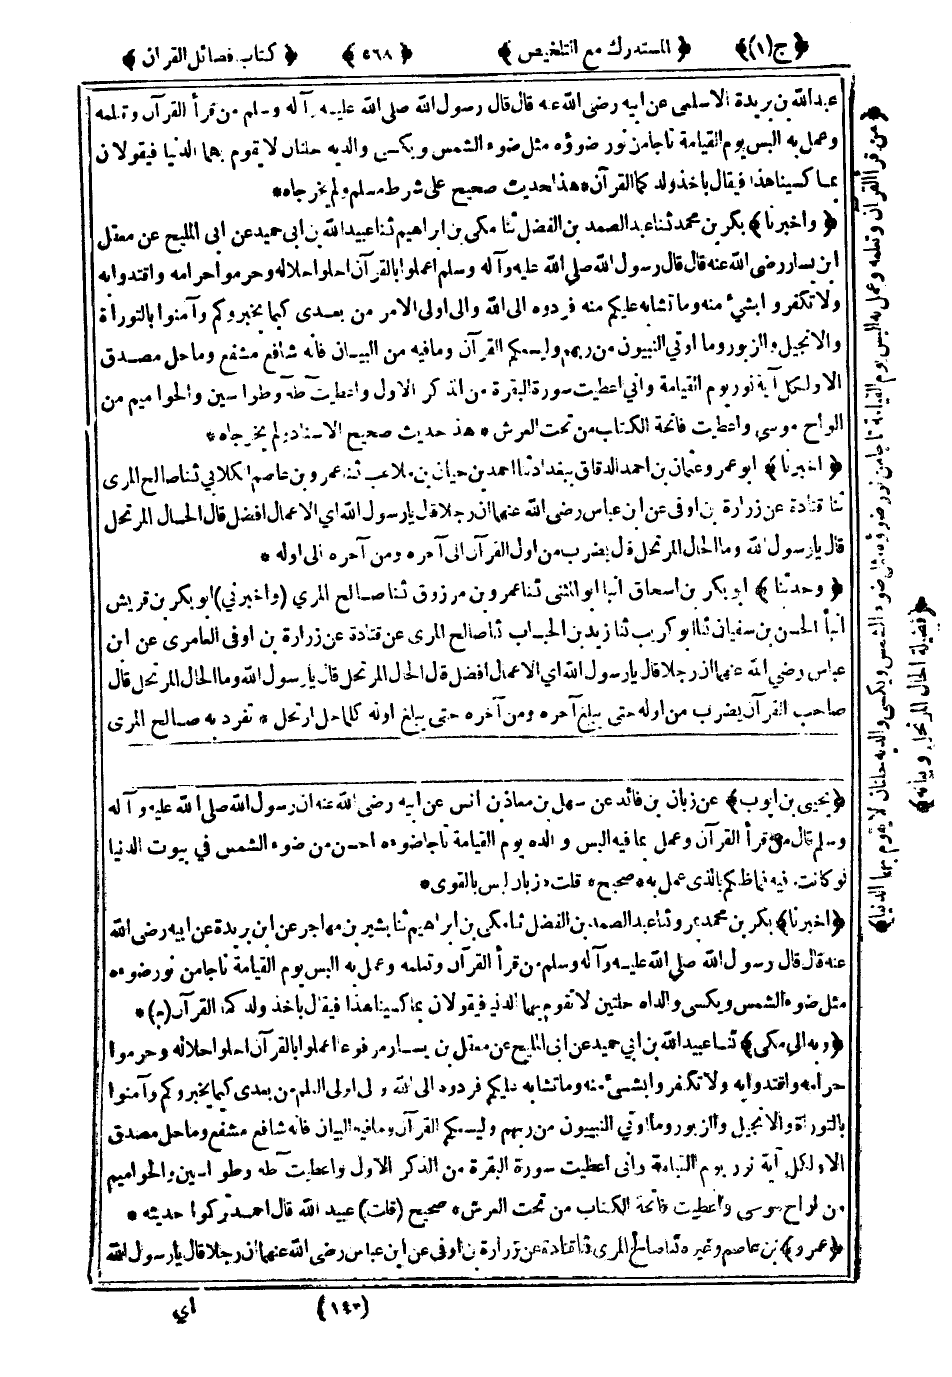 ﴿ج(١)﴾ ﴿المستدرك مع التلخيص﴾ ﴿٥٦٨﴾ ﴿كتاب فصائل القرآن﴾
عبدالله بن بريدة الاسلمى عن ابيه رضى الله عنه قال قال رسول الله صلى الله عليه وآله وسلم من قرأ القرآن وتعلمه
وعمل به البس يوم القيامة تاجا من نور ضوؤه مثل ضوء الشمس ويكسى والديه حلتان لا يقوم بهما الدنيا فيقولان
بما كسينا هذا فيقال باخذ ولدكما القرآن * هذا حديث صحيح على شرط مسلم ولم يخرجاه *
﴿واخبرنا﴾ بكر بن محمد ثنا عبد الصمد بن الفضل ثنا مكى بن ابراهيم ثنا عبيد الله بن ابى حميد عن ابى المليح عن معقل
ابن يسار رضى الله عنه قال قال رسول الله صلى الله عليه وآله وسلم اعملوا بالقرآن احلوا حلاله وحرموا حرامه واقتدوا به
ولا تكفروا بشيء منه وما تشابه عليكم منه فردوه الى الله والى اولى الامر من بعدى كيما يخبروكم وآمنوا بالتوراة
والانجيل والزبور وما اوتي النبيون من ربهم وليسعكم القرآن ومافيه من البيان فانه شافع مشفع وماحل مصدق
الا ولكل آية نور يوم القيامة واني اعطيت سورة البقرة من الذكر الاول واعطيت طه وطواسين والحواميم من
الواح موسى واعطيت فاتحة الكتاب من تحت العرش * هذا حديث صحيح الاسناد ولم يخرجاه *
﴿اخبرنا﴾ ابو عمرو عثمان بن احمد الدقاق ببغداد ثنا احمد بن حيان بن ملاعب ثنا عمرو بن عاصم الكلابي ثنا صالح المرى
ثنا قتادة عن زرارة بن اوفى عن ابن عباس رضى الله عنهما ان رجلا قال يا رسول الله اي الاعمال افضل قال الحال المرتحل
قال يا رسول الله وما الحال المرتحل قال يضرب من اول القرآن الى آخره ومن آخره الى اوله *
﴿وحدثنا﴾ ابو بكر بن اسحاق انبا ابو المثنى ثنا عمرو بن مرزوق ثنا صالح المري (واخبرني) ابو بكر بن قريش
انبأ الحسن بن سفيان ثنا ابو كريب ثنا زيد بن الحباب ثنا صالح المرى عن قتادة عن زرارة بن اوفى العامرى عن ابن
عباس رضي الله عنهما ان رجلا قال يا رسول الله اي الاعمال افضل قال الحال المرتحل قال يا رسول الله وما الحال المرتحل قال
صاحب القرآن يضرب من اوله حتى يبلغ آخره ومن آخره حتى يبلغ اوله كلما حل ارتحل * تفرد به صالح المرى
﴿يحيى بن ايوب﴾ عن زبان بن فائد عن سهل بن معاذ بن انس عن ابيه رضى الله عنه ان رسول الله صلى الله عليه وآله
وسلم قال من قرأ القرآن وعمل بما فيه البس والده يوم القيامة تاجا ضوءه احسن من ضوء الشمس في بيوت الدنيا
لو كانت فيه فما ظنكم بالذى عمل به * صحيح * قلت * زبان ليس بالقوى *
﴿اخبرنا﴾ بكر بن محمد بمرو ثنا عبد الصمد بن الفضل ثنا مكى بن ابراهيم ثنا بشير بن مهاجر عن ابن بريدة عن ابيه رضى الله
عنه قال قال رسول الله صلى الله عليه وآله وسلم من قرأ القرآن وتعلمه وعمل به البس يوم القيامة تاجا من نور ضوءه
مثل ضوء الشمس ويكسى والداه حلتين لا تقوم بهما الدنيا فيقولان بما كسينا هذا فيقال باخذ ولدكما القرآن (م) *
﴿وبه الى مكى﴾ ثنا عبيد الله بن ابي حميد عن ابى المليح عن معقل بن يسار مرفوعا اعملوا بالقرآن احلوا حلاله وحرموا
حرامه واقتدوا به ولا تكفروا بشيء منه وما تشابه عليكم فردوه الى الله والى اولى العلم من بعدى كيما يخبروكم وآمنوا
بالتوراة والانجيل والزبور وما اوتي النبيون من ربهم وليسعكم القرآن ومافيه البيان فانه شافع مشفع وماحل مصدق
الا ولكل آية نور يوم القيامة وانى اعطيت سورة البقرة من الذكر الاول واعطيت طه وطواسين والحواميم
من الواح موسى واعطيت فاتحة الكتاب من تحت العرش * صحيح (قلت) عبيد الله قال احمد تركوا حديثه *
﴿عمرو﴾ بن عاصم وغيره ثنا صالح المرى ثنا قتادة عن زرارة بن اوفى عن ابن عباس رضى الله عنهما ان رجلا قال يا رسول الله
﴿من قرأ القرآن وتعلمه وعمل به البس يوم القيامة تاجا من نور ضوءه مثل ضوء الشمس ويكسى والديه حلتان لا يقوم بهما الدنيا﴾
﴿فضيلة الحال المرتحل وبيانه﴾
(١٤٣) اي